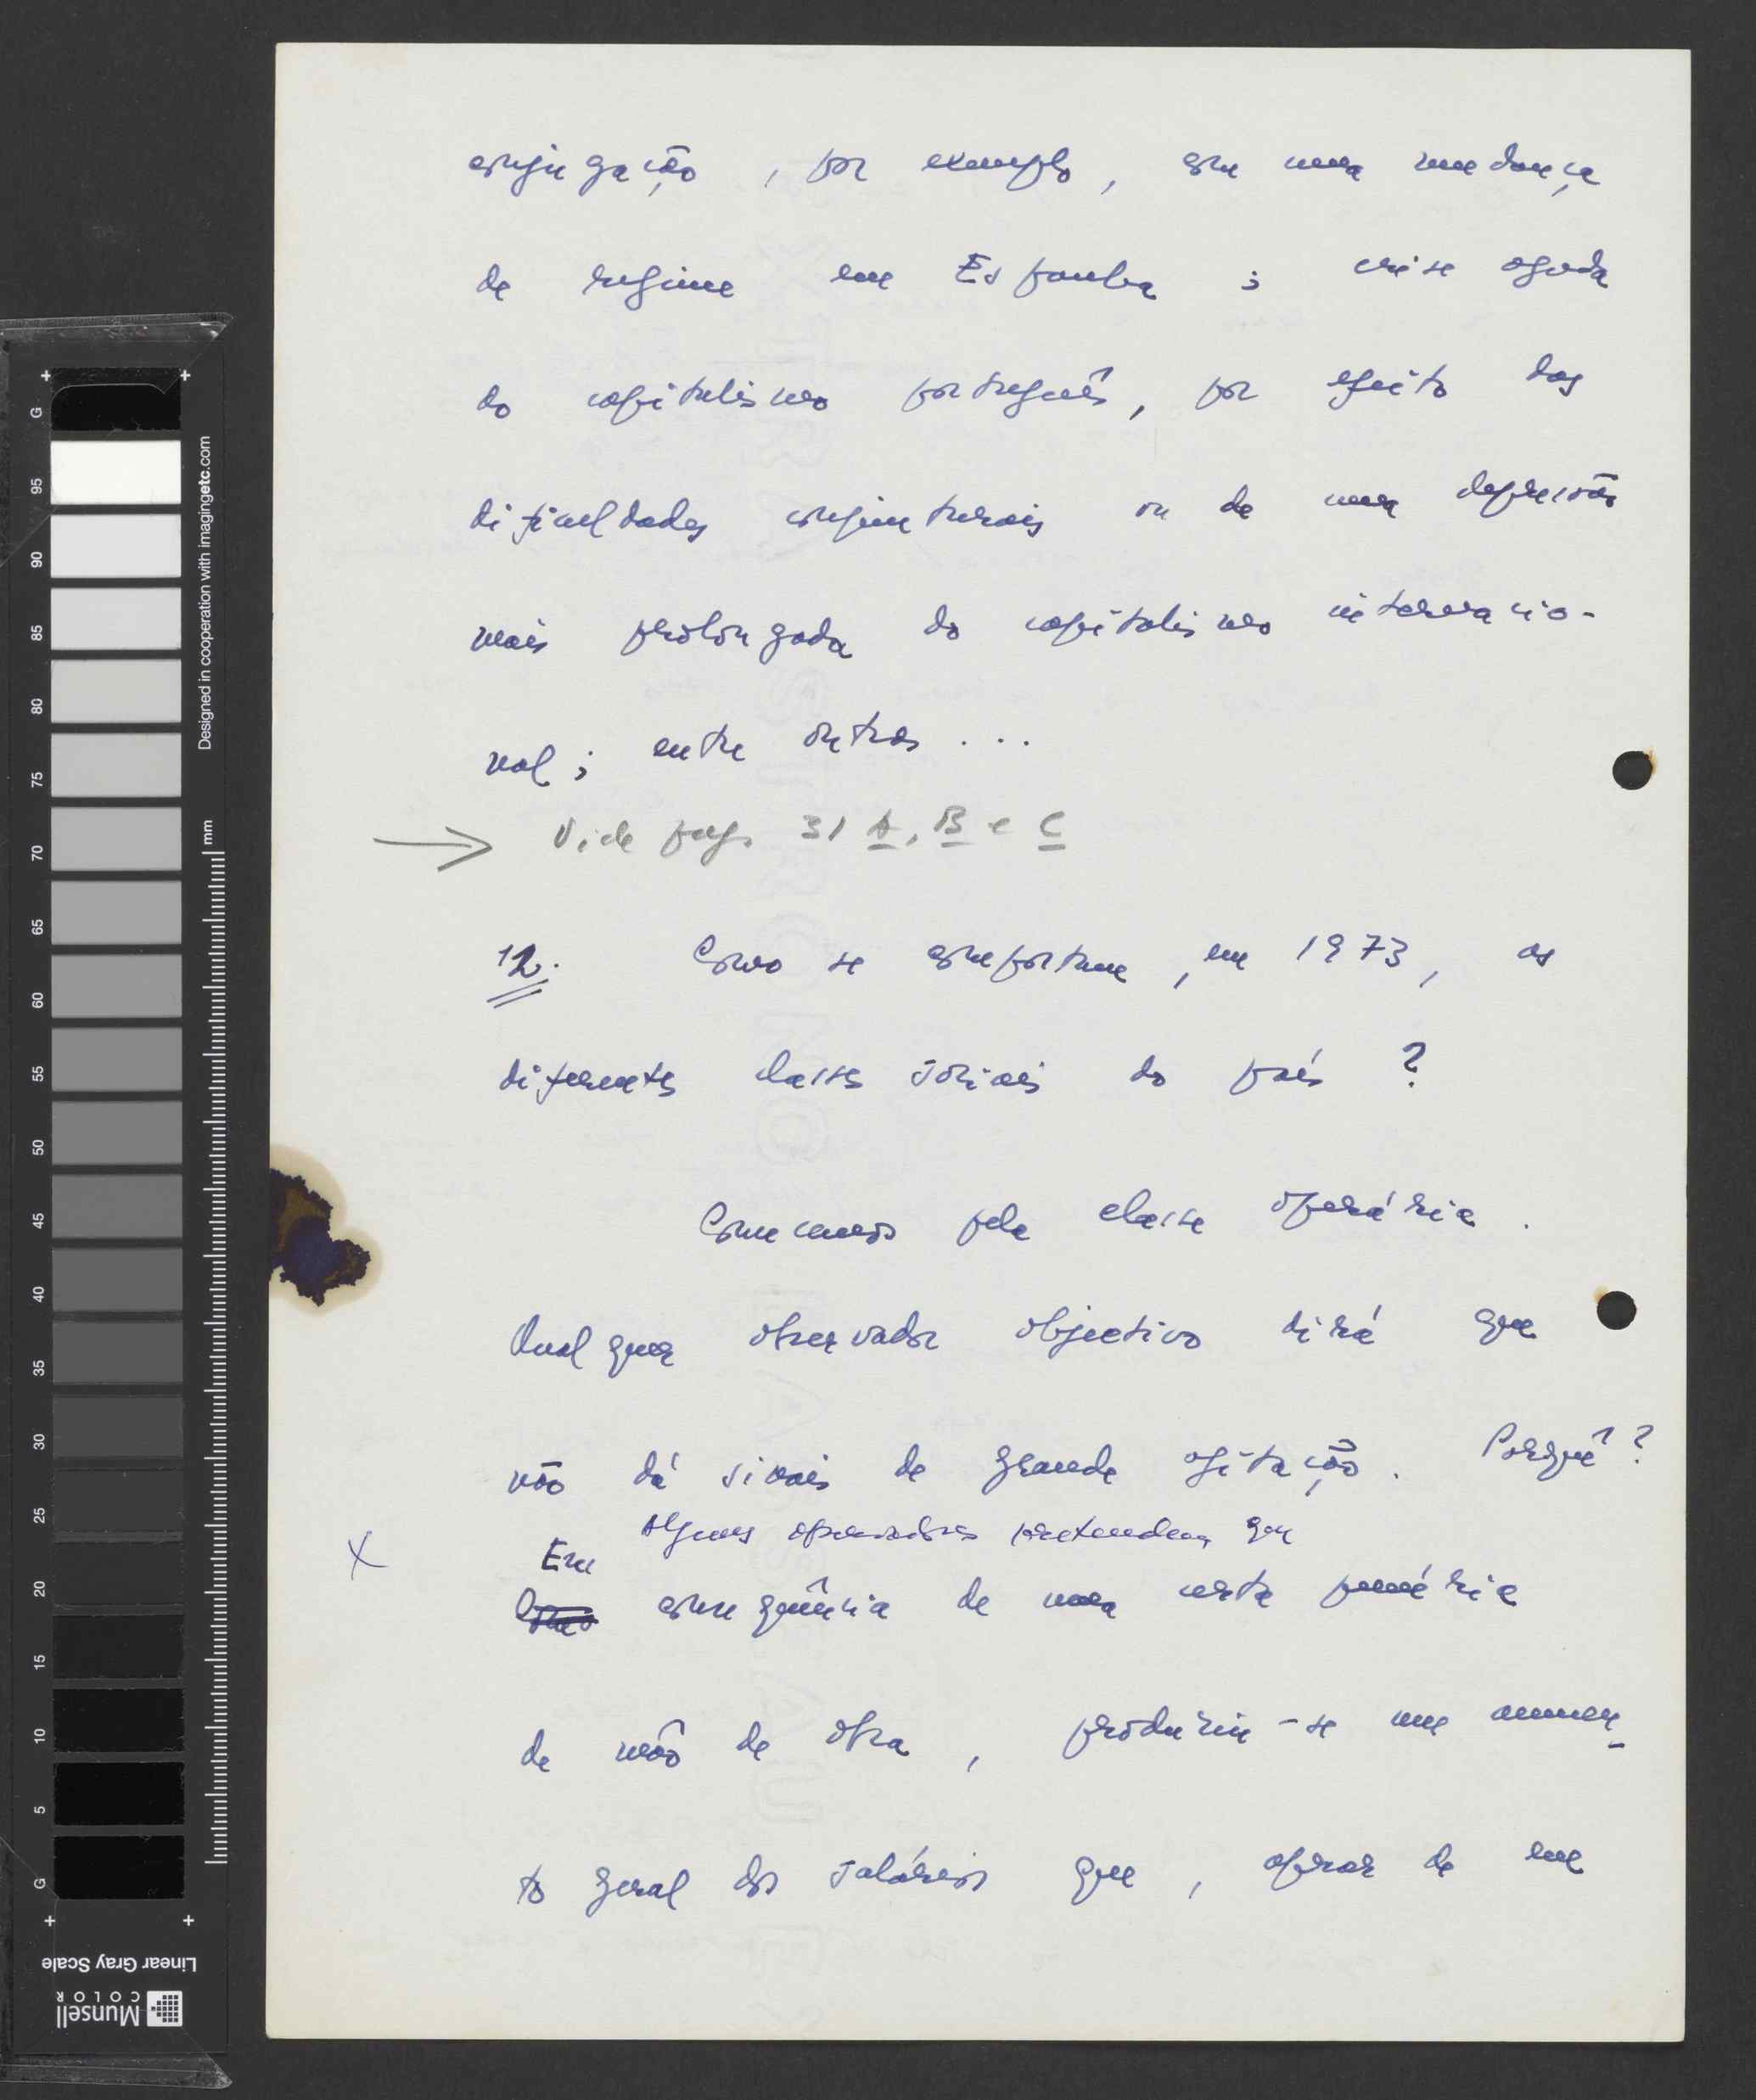 conjugação, por exemplo, com uma mudança
de regime em Espanha; crise aguda
do capitalismo português, por efeito das
dificuldades conjunturais ou de uma depressão
mais prolongada do capitalismo internacio-
nal; entre outras...
→ Vide pags. 31 A, B e C
12. Como se comportam, em 1973, as
diferentes classes sociais do país?
Comecemos pela classe operária.
Qualquer observador objectivo dirá que
não dá sinais de grande agitação. Porquê?
Alguns observadores pretendem que
X Em
Como consequência de uma certa penúria
de mão de obra, produziu-se um aumen-
to geral dos salários que, apesar de em
G 95 90 85 80 75 70 65 60 55 50 45 40 35 30 25 20 15 10 5 G
Designed in cooperation with imagingetc.com
mm
Linear Gray Scale
Munsell
COLOR